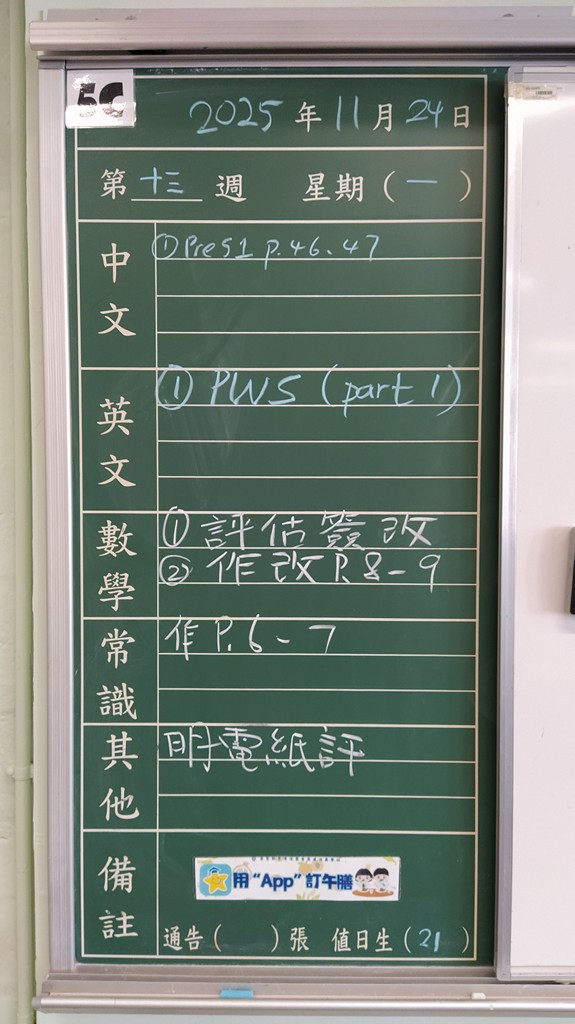 5C
2025年11月24日
第十三週 星期(一)
中文
①PreS1 p.46、47
英文
① PWS (part 1)
數學
① 評估簽改
② 作改P.8-9
常識
作P.6-7
其他
明電紙評
備註
用"App"訂午膳
通告( )張 值日生(21)